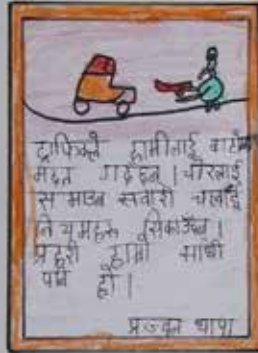 ट्राफिकले हामीलाई बाटोमा
मद्दत गर्दछन् । चोरलाई
समाउन सवारी चलाई
नियमहरू सिकाउँछन् ।
प्रहरी हाम्रो साथी
पनि हो ।
प्रज्वल थापा